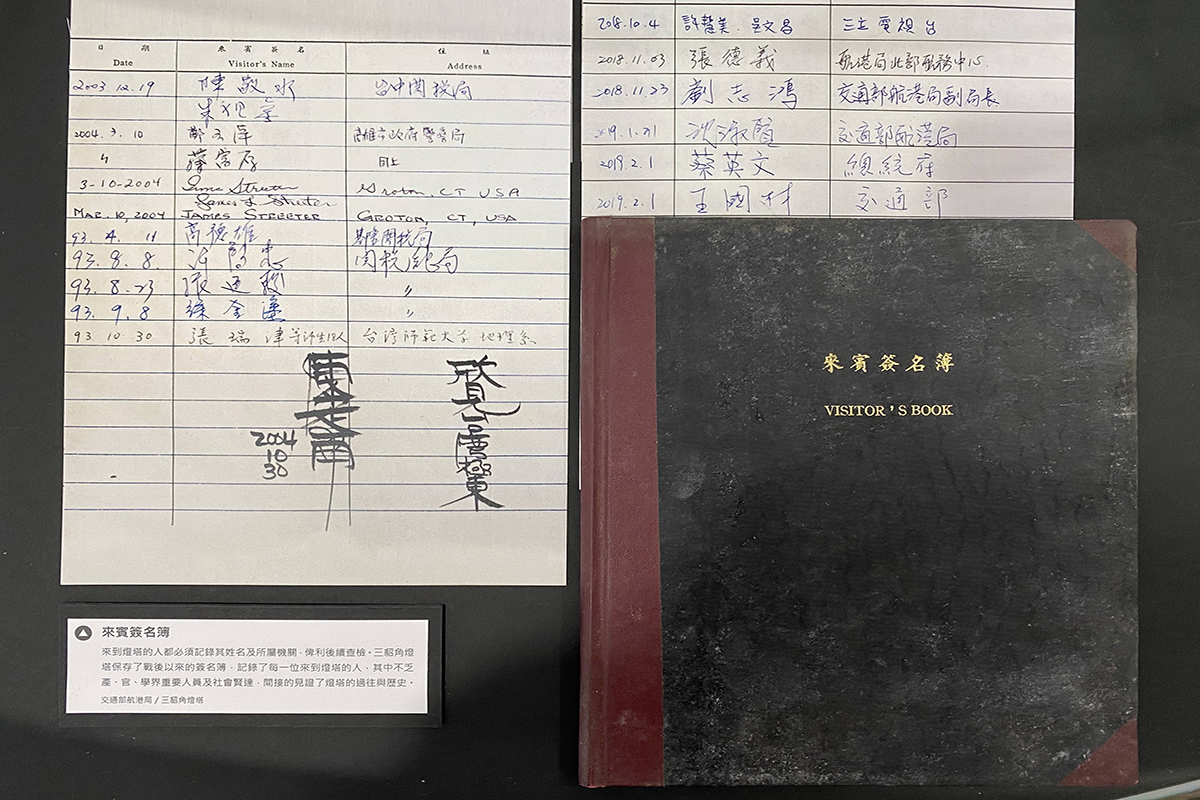 日期 來賓簽名 住址
Date Visitor's Name Address
2003 12.19 陳敬水 台中関稅局
2004.3.10 高雄市政府警察局
〃 同上
3-10-2004 Groton, CT USA
James L Streeter
MAR. 10, 2004 JAMES STREETER GROTON, CT, USA
93. 4. 11 高德雄 基隆関稅局
93. 8. 8. 関稅總局
93. 8. 23 〃
93. 9. 8 〃
93 10 30 張瑞津等師生18人 台湾師範大学地理系
2004
10
30
2018.10.4 許慧美.吳文昌 三立電視台
2018.11.03 張德義 航港局北部服務中心.
2018.11.23 劉志鴻 交通部航港局副局長
2019.1.21 交通部航港局
2019.2.1 蔡英文 總統府
2019.2.1 王國材 交通部
來賓簽名簿
VISITOR'S BOOK
來賓簽名簿
來到燈塔的人都必須記錄其姓名及所屬機關，俾利後續查檢。三貂角燈
塔保存了戰後以來的簽名簿，記錄了每一位來到燈塔的人，其中不乏
產、官、學界重要人員及社會賢達，間接的見證了燈塔的過往與歷史。
交通部航港局 / 三貂角燈塔